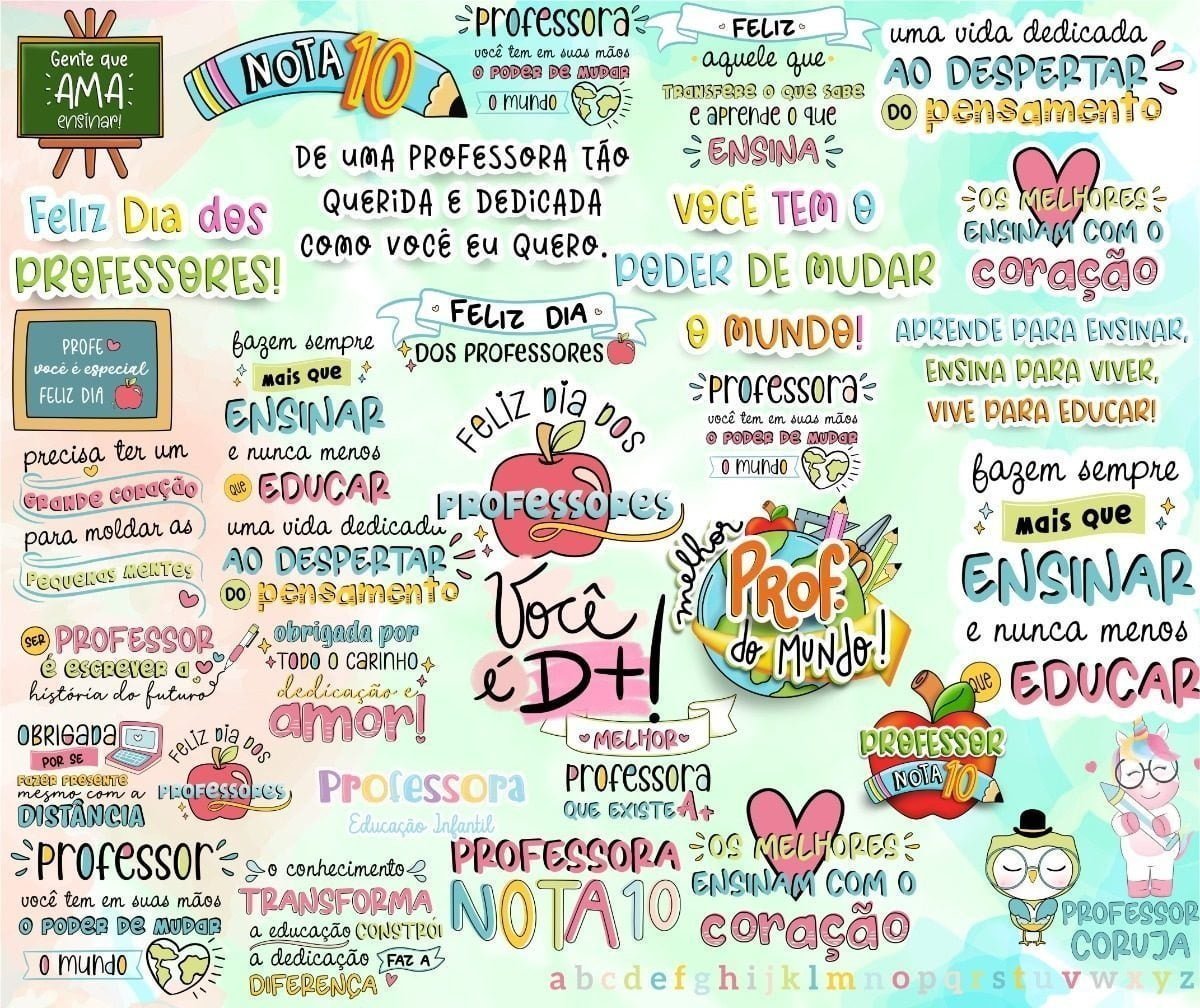 Gente que
AMA
ensinar!
NOTA 10
PROFESSORA
você tem em suas mãos
O PODER DE MUDAR
O mundo
FELIZ
aquele que
TRANSFERE O QUE SABE
e aprende o que
ENSINA
uma vida dedicada
AO DESPERTAR
DO pensamento
Feliz Dia dos
PROFESSORES!
DE UMA PROFESSORA TÃO
QUERIDA E DEDICADA
COMO VOCÊ EU QUERO.
VOCÊ TEM O
PODER DE MUDAR
O MUNDO!
OS MELHORES
ENSINAM COM O
coração
PROFE
você é especial
FELIZ DIA
fazem sempre
MAIS QUE
ENSINAR
e nunca menos
QUE EDUCAR
FELIZ DIA
DOS PROFESSORES
APRENDE PARA ENSINAR,
ENSINA PARA VIVER,
VIVE PARA EDUCAR!
FELIZ DIA DOS
PROFESSORES
PROFESSORA
você tem em suas mãos
O PODER DE MUDAR
O mundo
precisa ter um
GRANDE CORAÇÃO
para moldar as
PEQUENAS MENTES
uma vida dedicada
AO DESPERTAR
DO pensamento
Você
é D+!
melhor
PROF.
do MUNDO!
fazem sempre
MAIS QUE
ENSINAR
e nunca menos
QUE EDUCAR
SER PROFESSOR
É ESCREVER A
história do futuro
obrigada por
TODO O CARINHO
dedicação e
amor!
OBRIGADA
POR SE
FAZER PRESENTE
mesmo com a
DISTÂNCIA
FELIZ DIA DOS
PROFESSORES
Professora
Educação Infantil
MELHOR
PROFESSORA
QUE EXISTE A+
PROFESSOR
NOTA 10
PROFESSOR
você tem em suas mãos
O PODER DE MUDAR
O mundo
o conhecimento
TRANSFORMA
a educação CONSTRÓI
a dedicação FAZ A
DIFERENÇA
PROFESSORA
NOTA 10
OS MELHORES
ENSINAM COM O
coração
PROFESSOR
CORUJA
a b c d e f g h i j k l m n o p q r s t u v w x y z